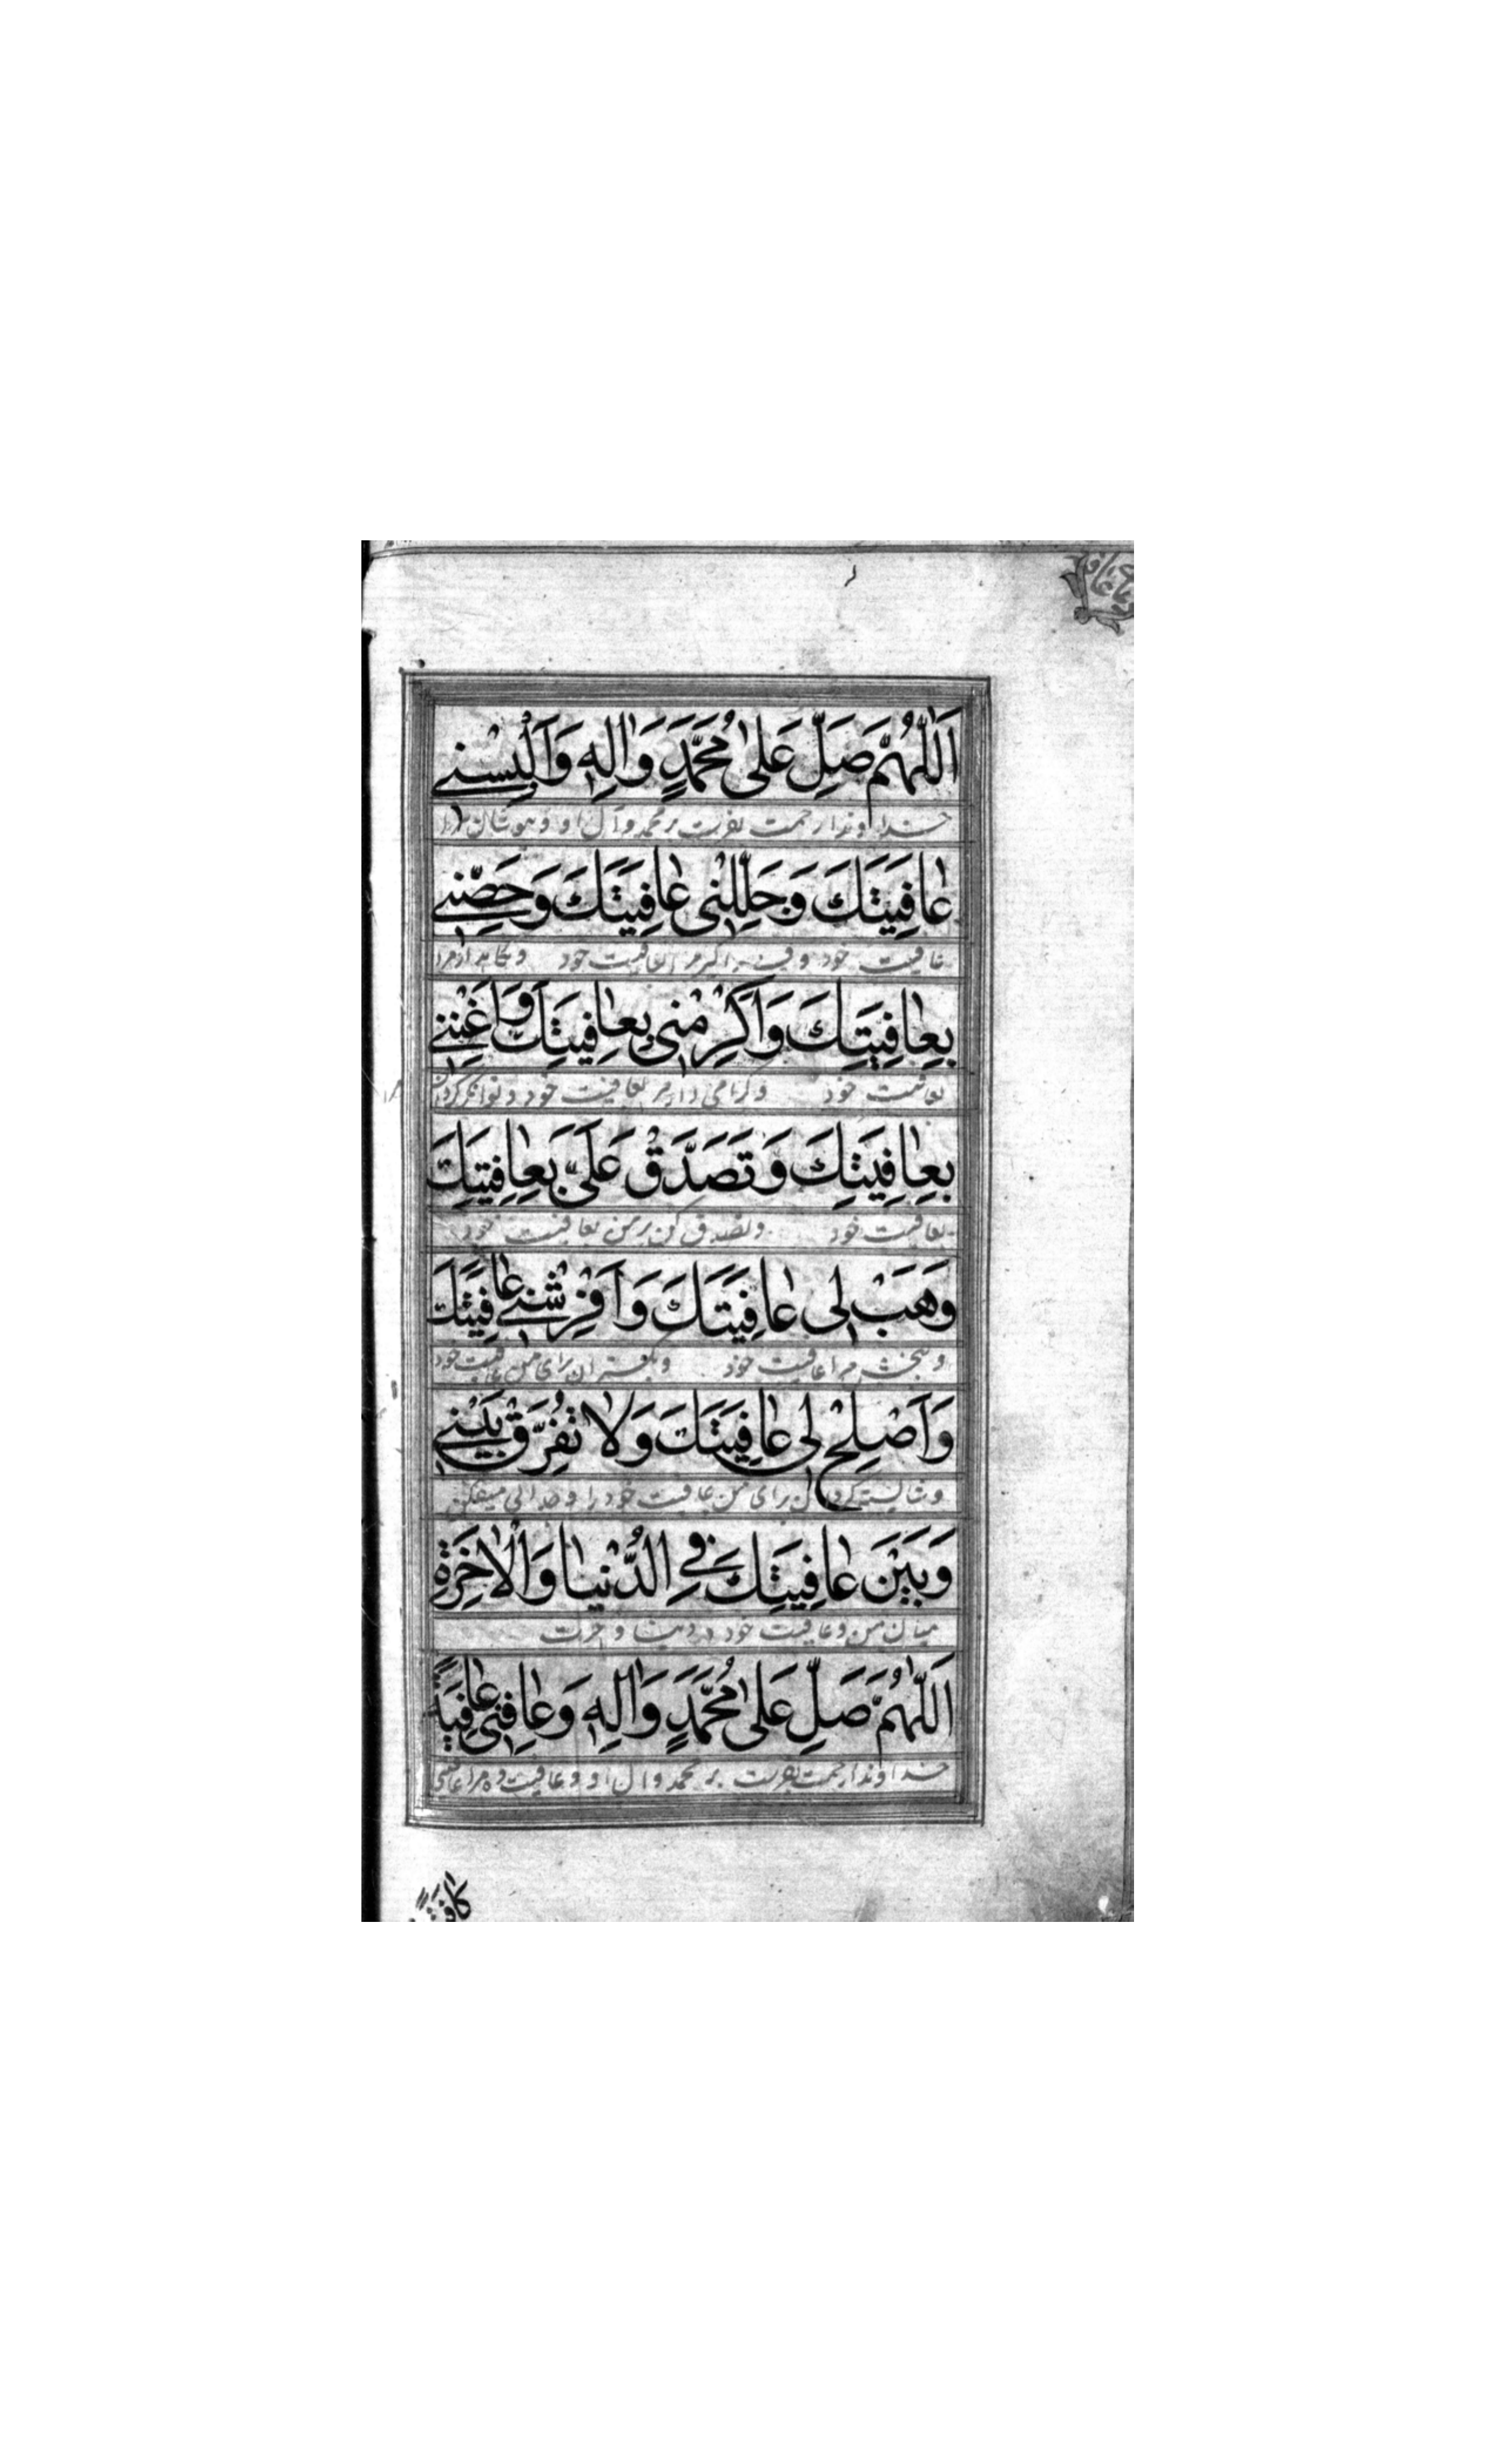 اَللّٰهُمَّ صَلِّ عَلٰى مُحَمَّدٍ وَاٰلِهِ وَاَلْبِسْنِي
خداوندا رحمت بفرست بر محمد و آل او و بپوشان مرا
عٰافِيَتَكَ وَجَلِّلْنِى عٰافِيَتَكَ وَحَصِّنِّي
عافيت خود و مرا عافيت خود و نگاهدار مرا
بِعٰافِيَتِكَ وَاَكْرِمْنِى بِعٰافِيَتِكَ وَاَغْنِنِي
بعافيت خود و گرامی دار مرا بعافيت خود و توانگر گردان
بِعٰافِيَتِكَ وَتَصَدَّقْ عَلَىَّ بِعٰافِيَتِكَ
بعافيت خود و تصدق کن بر من بعافيت خود
وَهَبْ لِى عٰافِيَتَكَ وَاَفْرِشْنِي عٰافِيَتَكَ
و ببخش مرا عافيت خود و بگستران برای من عافيت خود
وَاَصْلِحْ لِى عٰافِيَتَكَ وَلٰا تُفَرِّقْ بَيْنِي
و شايسته گردان برای من عافيت خود را و جدائی ميفکن
وَبَيْنَ عٰافِيَتِكَ فِي الدُّنْيٰا وَالْاٰخِرَةِ
ميان من و عافيت خود در دنيا و آخرت
اَللّٰهُمَّ صَلِّ عَلٰى مُحَمَّدٍ وَاٰلِهِ وَعٰافِنِى عٰافِيَةً
خداوندا رحمت بفرست بر محمد و آل او و عافيت ده مرا عافيتی